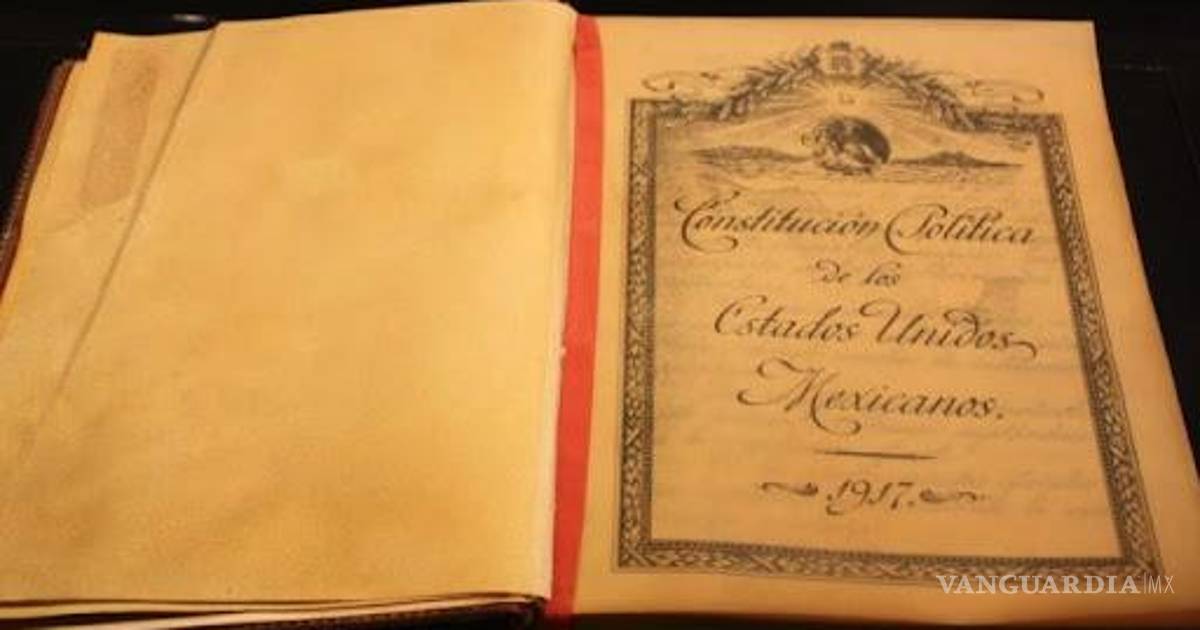 Constitución Política
de los
Estados Unidos
Mexicanos.
1917.
VANGUARDIA|MX